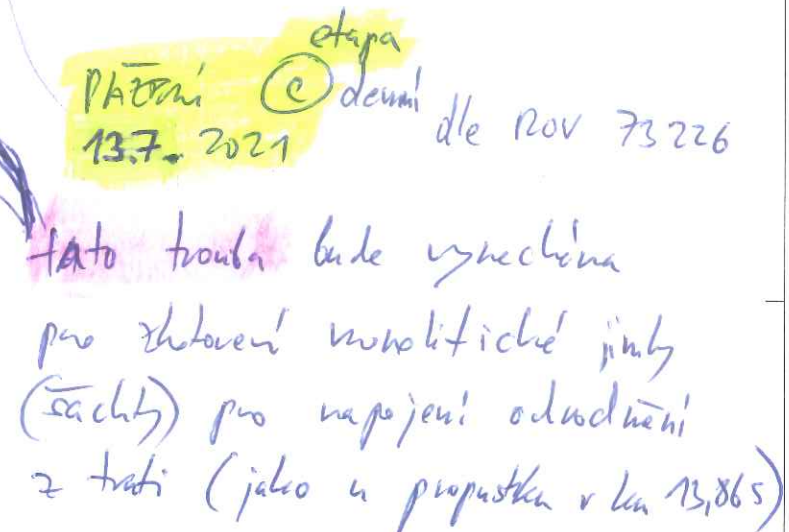 etapa
PAŽENÍ C denní dle ROV 73226
13.7. 2021
tato trouba bude vynechána
pro zhotovení monolitické jímky
(šachty) pro napojení odvodnění
z trati (jako u propustku v km 13,865)